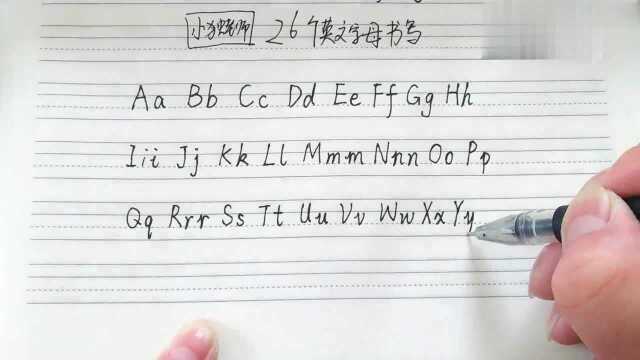 小狼老师 26个英文字母书写
Aa Bb Cc Dd Ee Ff Gg Hh
Iii Jj Kk Ll Mmm Nnn Oo Pp
Qq Rrr Ss Tt Uu Vv Ww Xx Yy